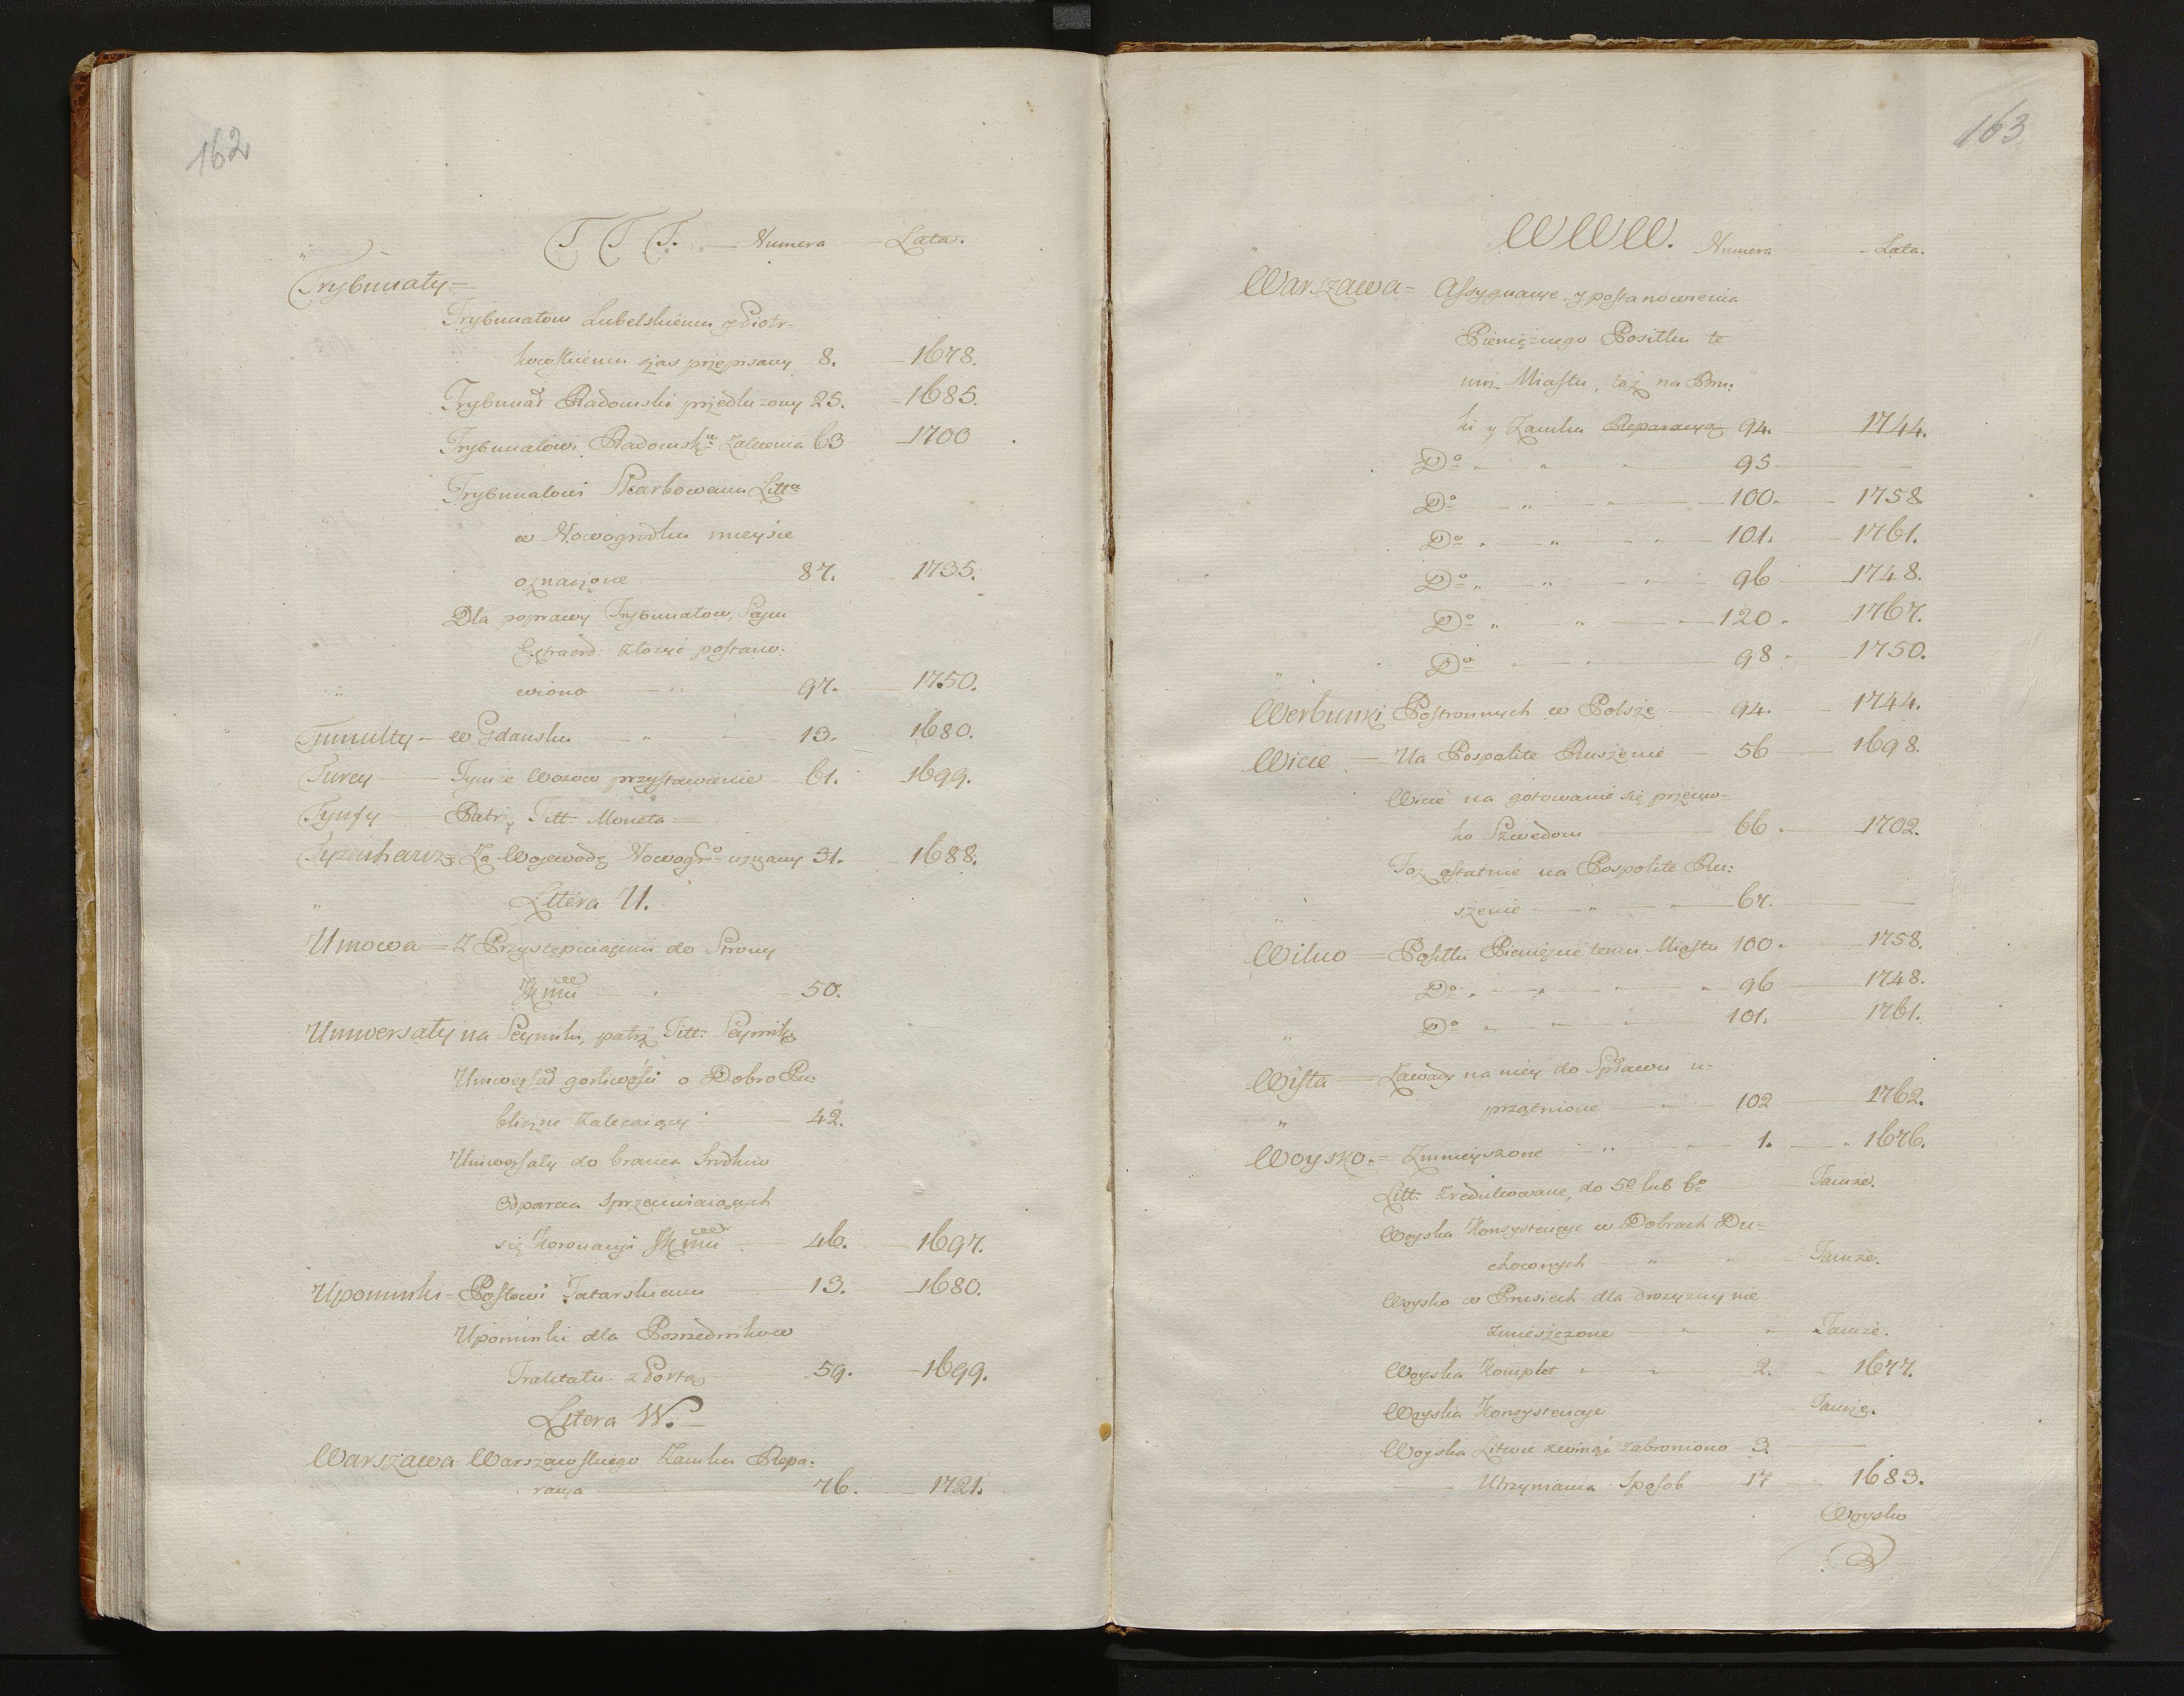 162
T T T. Numera Lata.
Trybunały =
Trybunałom Lubelskiemu y Piotr-
kowskiemu czas przepisany 8. 1678.
Trybunał Radomski przedłużony 25. 1685.
Trybunałowi Radomsk. zalecenia 63 1700
Trybunałowi Skarbowemu Litt.
w Nowogrodku mieysce
oznaczone 87. 1735.
Dla poprawy Trybunałow, Seym
Extraord: złożyć postano:
wiono 97. 1750.
Tumulty — w Gdansku 13. 1680.
Turcy — Tymże Wozow przystawienie 61. 1699.
Tynfy — Patrz Titt: Moneta =
Tyzenhauz = Za Wojewodę Nowogr. uznany 31. 1688.
Litera U.
Umowa = Z Przystępuiącemi do Strony
50.
Uniwersały na Seymiki, patrz Titt: Seymiki
Uniwersał gorliwości o Dobro Pu
bliczne zalecaiący 42.
Uniwersały do brania Srodkow
Odparcia sprzeciwiaiących
się Koronacyi 46. 1697.
Upominki = Posłowi Tatarskiemu 13. 1680.
Upominki dla Posrzednikow
Traktatu z Portą 59. 1699.
Litera W.
Warszawa Warszawskiego Zamku Repa:
racya 76. 1721.
163
W W W. Numera Lata.
Warszawa = Assygnacye y postanowienia
Pieniężnego Posiłku te
muż Miastu, toż na Bru:
ki y Zamku Reparacyą 94. 1744.
Do 95
Do 100. 1758.
Do 101. 1761.
Do 96 1748.
Do 120. 1767.
Do 98 1750.
Werbunki Postronnych w Polsze 94. 1744.
Wicie = Na Pospolite Ruszenie 56 1698.
Wicie na gotowanie się przeciw-
ko Szwedom 66. 1702.
Toż ostatnie na Pospolite Ru:
szenie 67.
Wilno = Posiłku Pieniężne temu Miastu 100. 1758.
Do 96 1748.
Do 101. 1761.
Wisła = Zawady na niey do Spławu u-
przątnione 102 1762.
Woysko. = Zmnieyszone 1. 1676.
Litt: zredukowane, do 5o lub 6o Tamże.
Woyska Konsystencye w Dobrach Du=
chownych Tamże.
Woysko w Prusiech dla drożyzny nie
zmieszczone Tamże.
Woyska Komplet 2. 1677.
Woyska Konsystencye Tamże.
Woyska Litwie zwinąć zabroniono 3.
Utrzymania Sposob 17 1683.
Woysko